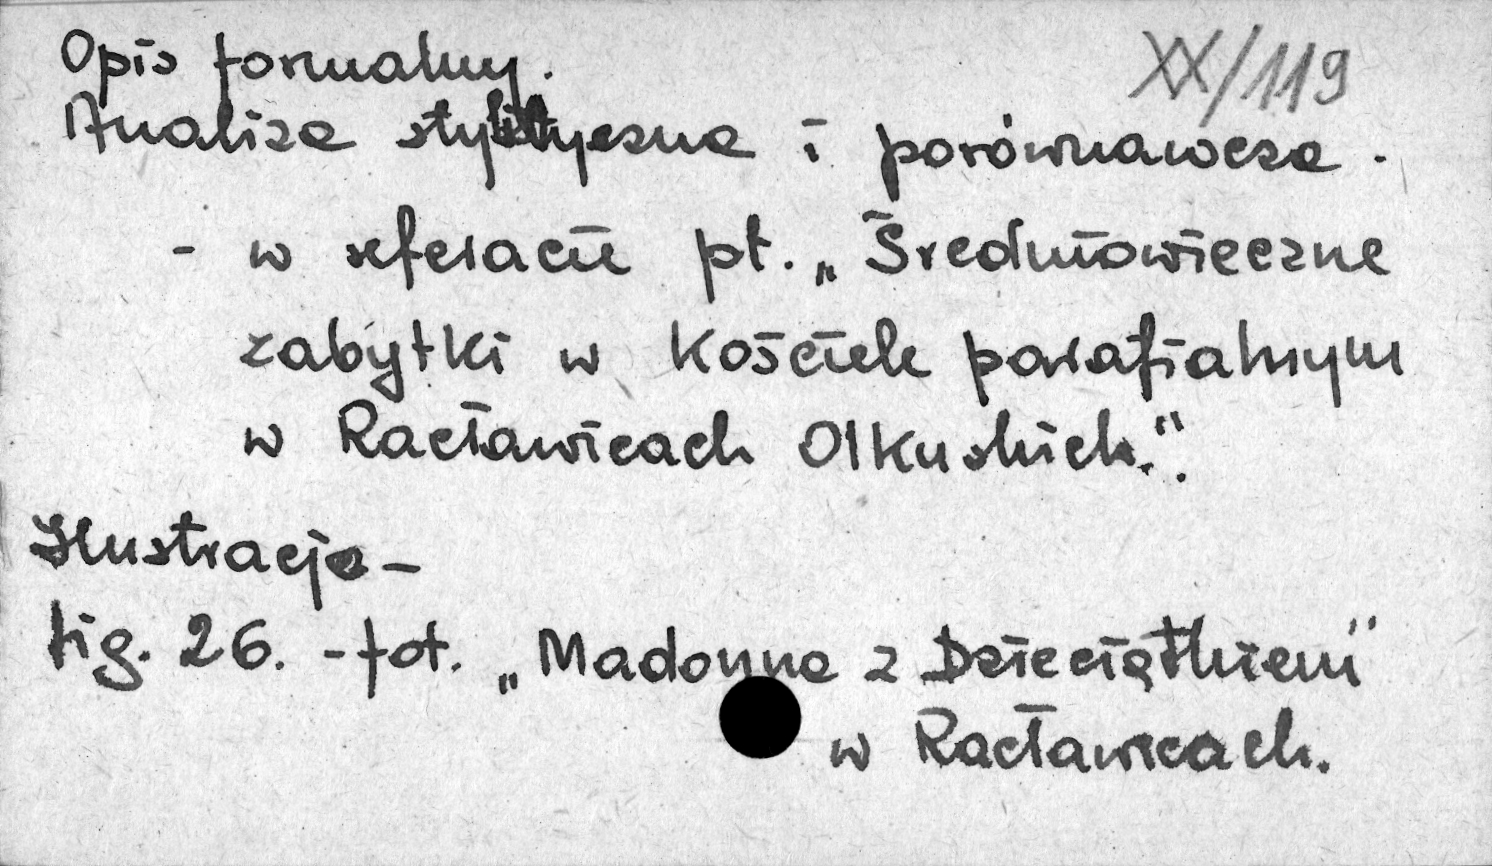 XX/119
Opis formalny.
Analiza stylistyczna i porównawcza.
- w referacie pt. „Średniowieczne
zabytki w Kościele parafialnym
w Racławicach Olkuskich.".
Ilustracja -
fig. 26. - fot. „Madonna z Dzieciątkiem"
w Racławicach.